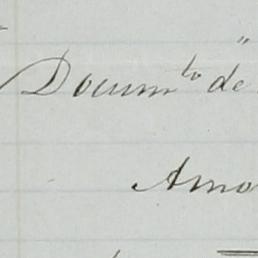 Docum^to de
Amo